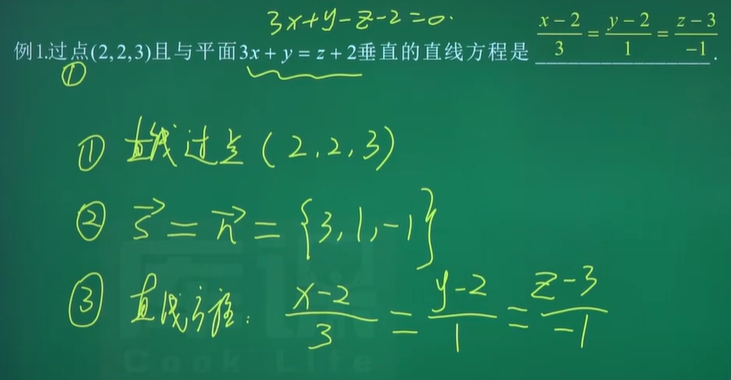 3x+y-z-2=0.
例1.过点(2,2,3)且与平面3x+y=z+2垂直的直线方程是 \frac{x-2}{3}=\frac{y-2}{1}=\frac{z-3}{-1}.
①
① 直线过点(2,2,3)
② \vec{s}=\vec{n}={3,1,-1}
③ 直线方程: \frac{x-2}{3}=\frac{y-2}{1}=\frac{z-3}{-1}
Cook Life